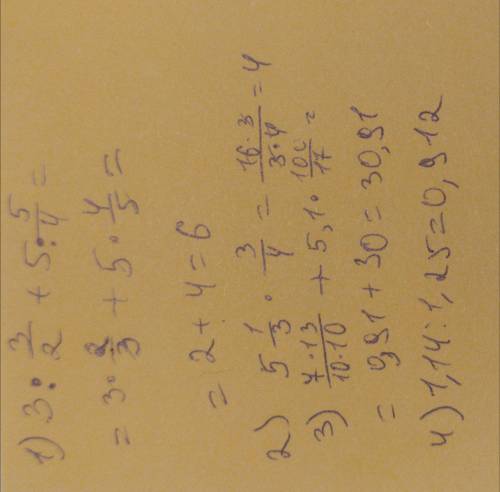 1) 3 : 3/2 + 5 : 5/4 =
= 3 · 2/3 + 5 · 4/5 =
= 2 + 4 = 6
2) 5 1/3 · 3/4 = 16 · 3/3 · 4 = 4
3) 7 · 13/10 · 10 + 5,1 · 100/17 =
= 0,91 + 30 = 30,91
4) 1,14 : 1,25 = 0,912